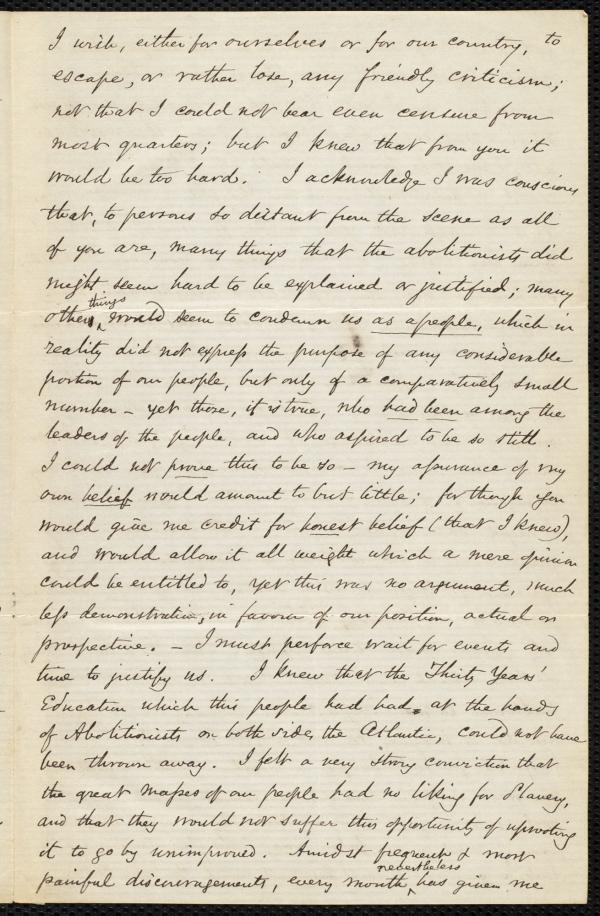 I wish, either for ourselves or for our country, to
escape, or rather lose, any friendly criticism;
not that I could not bear even censure from
most quarters; but I knew that from you it
would be too hard. I acknowledge I was conscious
that, to persons so distant from the scene as all
of you are, many things that the abolitionists did
might seem hard to be explained or justified; many
things
other would seem to condemn us as a people, which in
reality did not express the purpose of any considerable
portion of our people, but only of a comparatively small
number – yet those, it is true, who had been among the
leaders of the people, and who aspired to be so still.
I could not prove this to be so – my assurance of my
own belief would amount to but little; for though you
would give me credit for honest belief (that I knew),
and would allow it all weight which a mere opinion
could be entitled to, yet this was no argument, much
less demonstration, in favour of our position, actual or
prospective. – I must perforce wait for events and
time to justify us. I knew that the Thirty Years'
Education which this people had had, at the hands
of Abolitionists on both sides the Atlantic, could not have
been thrown away. I felt a very strong conviction that
the great masses of our people had no liking for Slavery,
and that they would not suffer this opportunity of uprooting
it to go by unimproved. Amidst frequent & most
nevertheless
painful discouragements, every month has given me